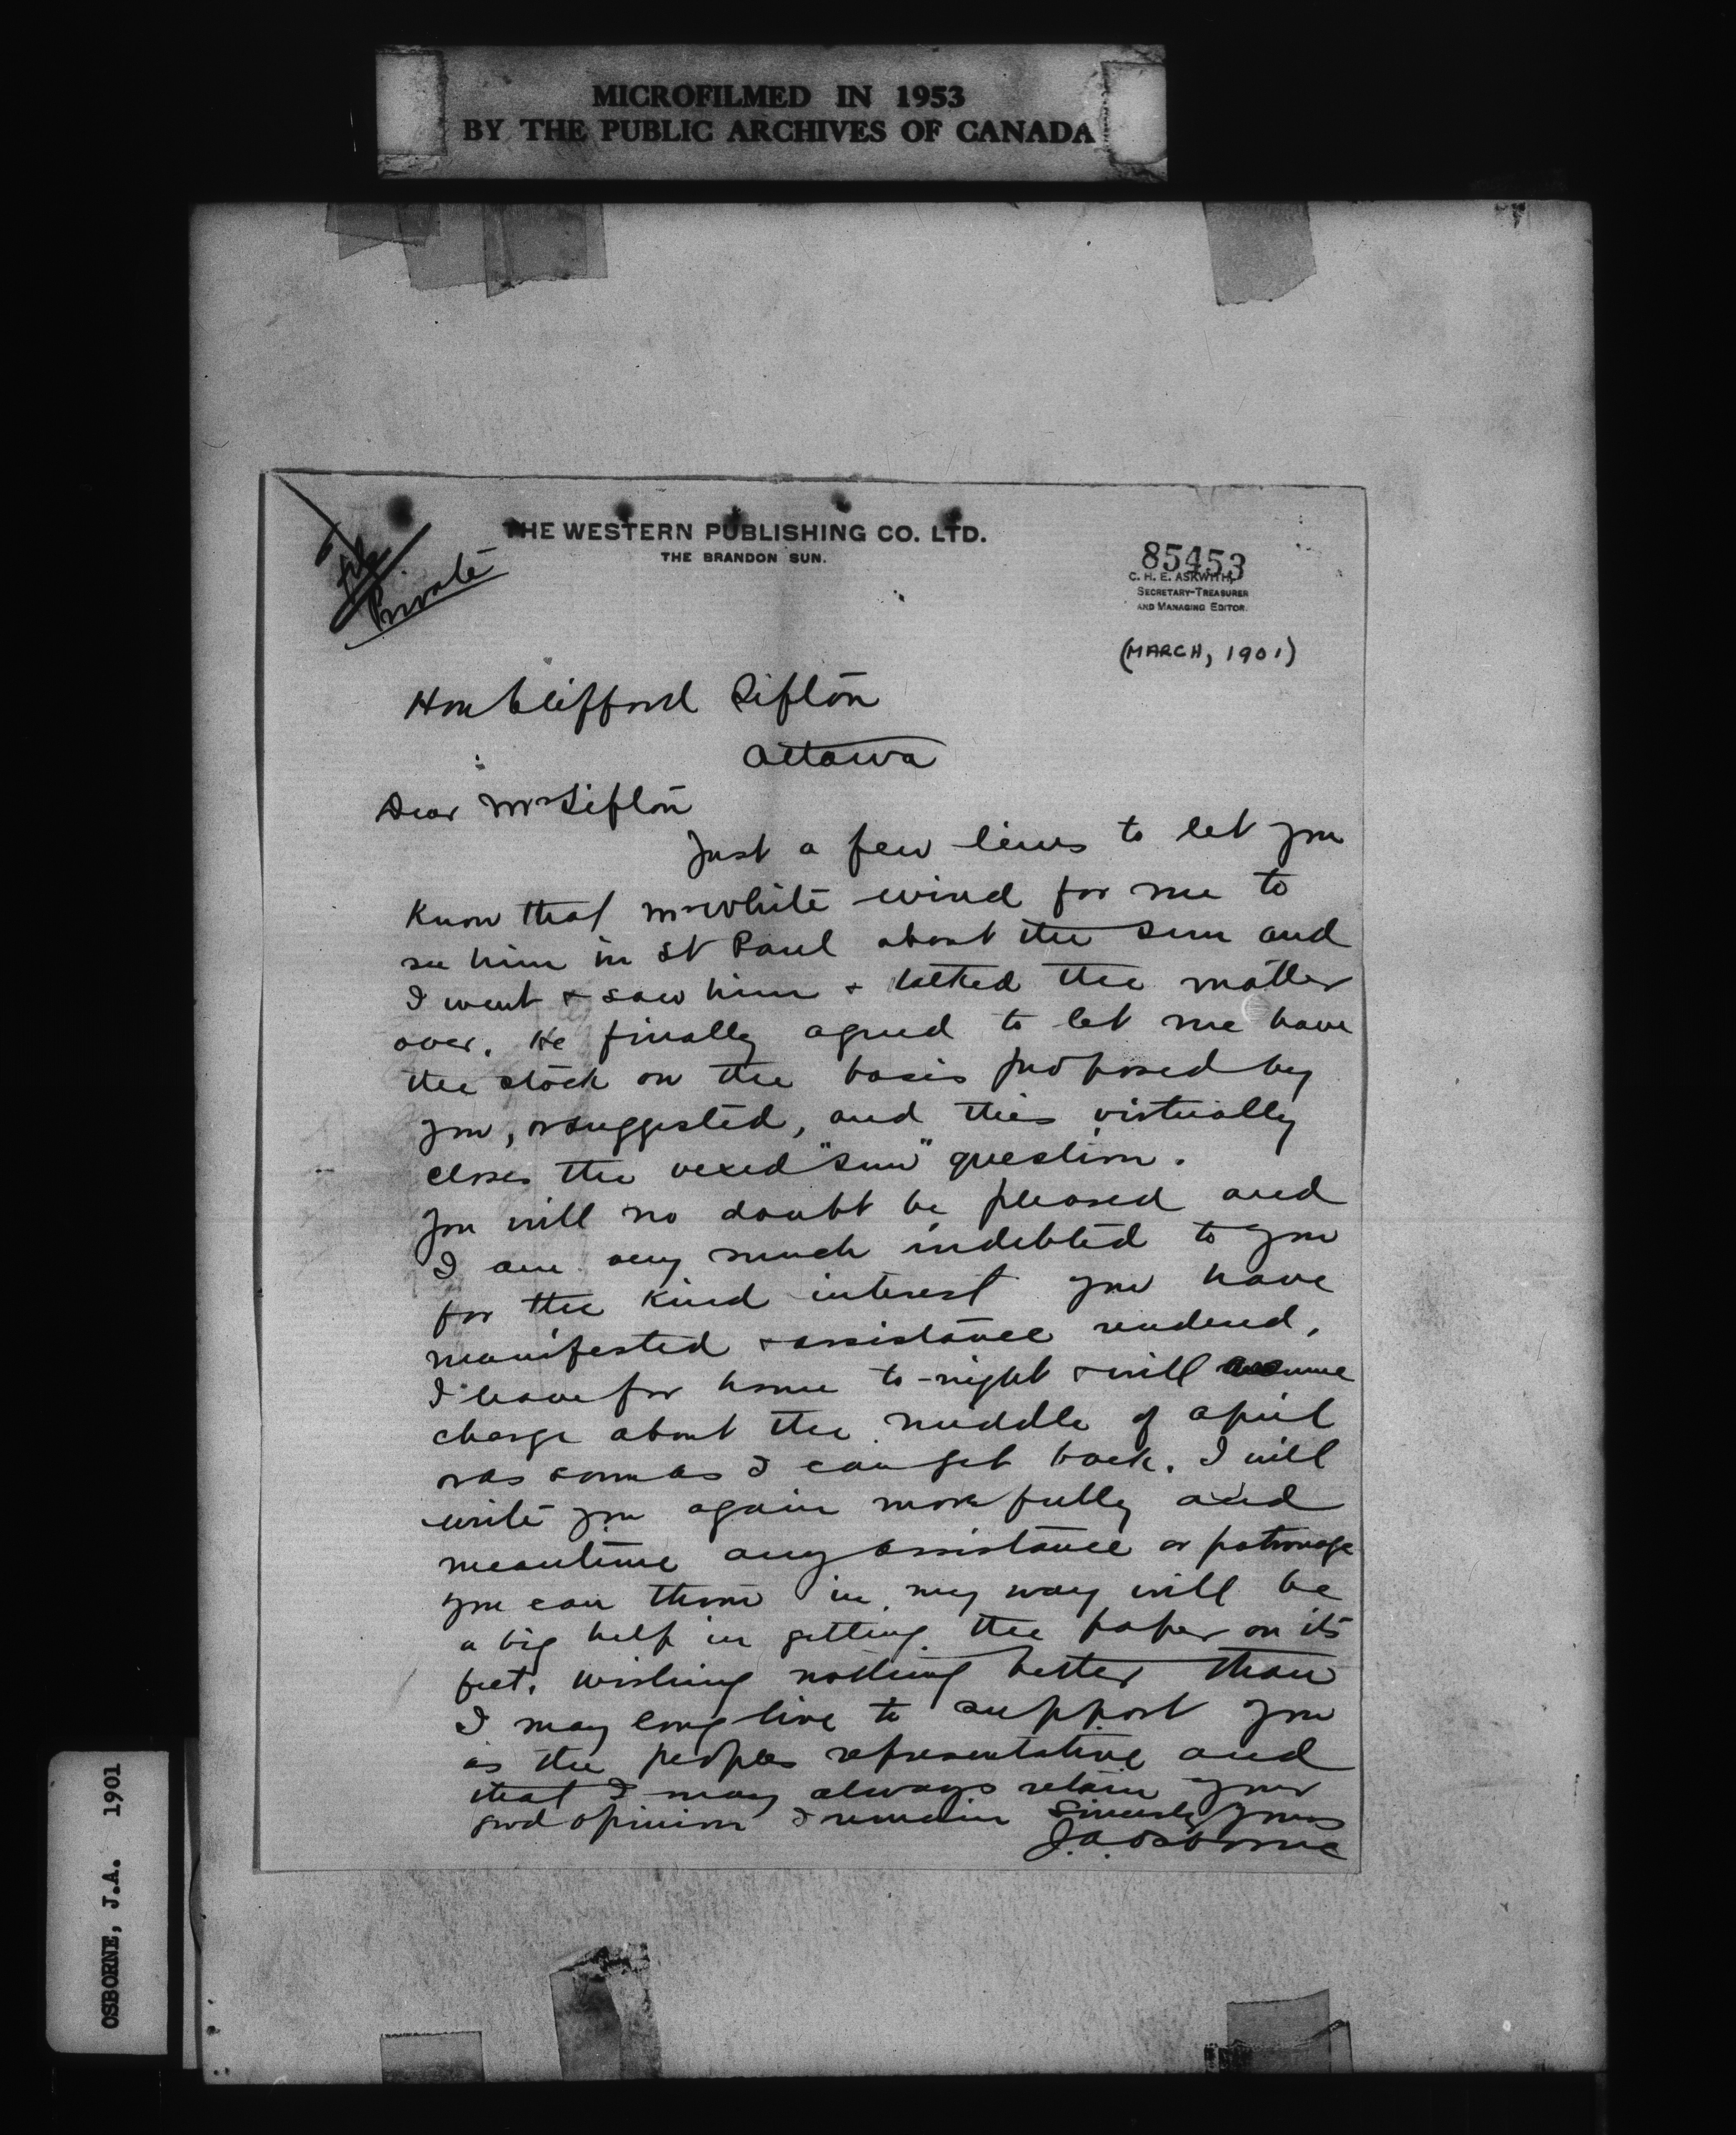 MICROFILMED IN 1953
BY THE PUBLIC ARCHIVES OF CANADA
THE WESTERN PUBLISHING CO. LTD.
THE BRANDON SUN.
file
Private
85453
C. H. E. ASKWITH,
SECRETARY-TREASURER
AND MANAGING EDITOR.
(MARCH, 1901)
Hon Clifford Sifton
Ottawa
Dear Mr Sifton
Just a few lines to let you
know that Mr White wired for me to
see him in St Paul about the Sun and
I went & saw him & talked the matter
over. He finally agreed to let me have
the stock on the basis proposed by
you, or suggested, and this virtually
closes the vexed "Sun" question.
You will no doubt be pleased and
I am very much indebted to you
for the kind interest you have
manifested & assistance rendered.
I leave for home to-night & will assume
charge about the middle of April
or as soon as I can get back. I will
write you again more fully and
meantime any assistance or patronage
you can throw in my way will be
a big help in getting the paper on its
feet. Wishing nothing better than
I may long live to support you
as the peoples representative and
that I may always retain your
good opinion I remain Sincerely yours
J. A. Osborne
OSBORNE, J.A. 1901